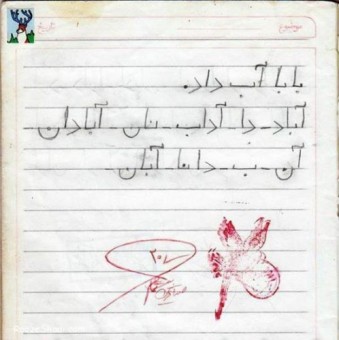 موضوع
بابا آب داد.
آباد - دا - آداب - نان - آبادان -
آن - ب - دانا - آبان -
۲۰